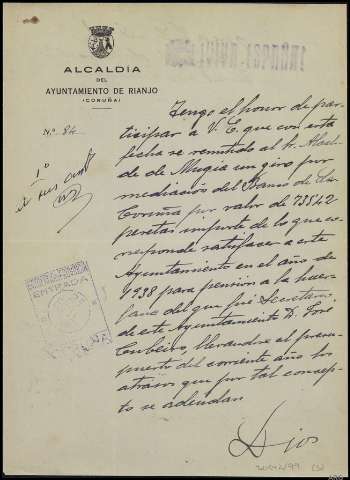 ALCALDÍA
DEL
AYUNTAMIENTO DE RIANJO
(CORUÑA)
Nº 84
Tengo el honor de par-
ticipar a V. E. que con esta
fecha se remitido al Sr. Alcal-
de de Mugia un giro por
mediación del Banco de La
Coruña por valor de 735'42
pesetas importe de lo que co-
rresponde satisfacer a este
Ayuntamiento en el año de
1938 para pensión a la huer-
fana del que fué Secretario
de este Ayuntamiento D. José
Cubeiro, llevandose al presu-
puesto del corriente año los
atrasos que por tal concep-
to se adeudan
Dios
ENTRADA